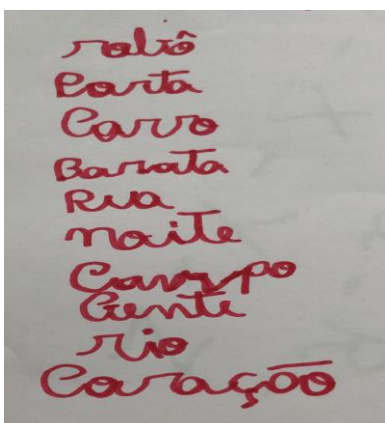 Porta
Carro
Barata
Rua
noite
Campo
Gente
rio
Coração